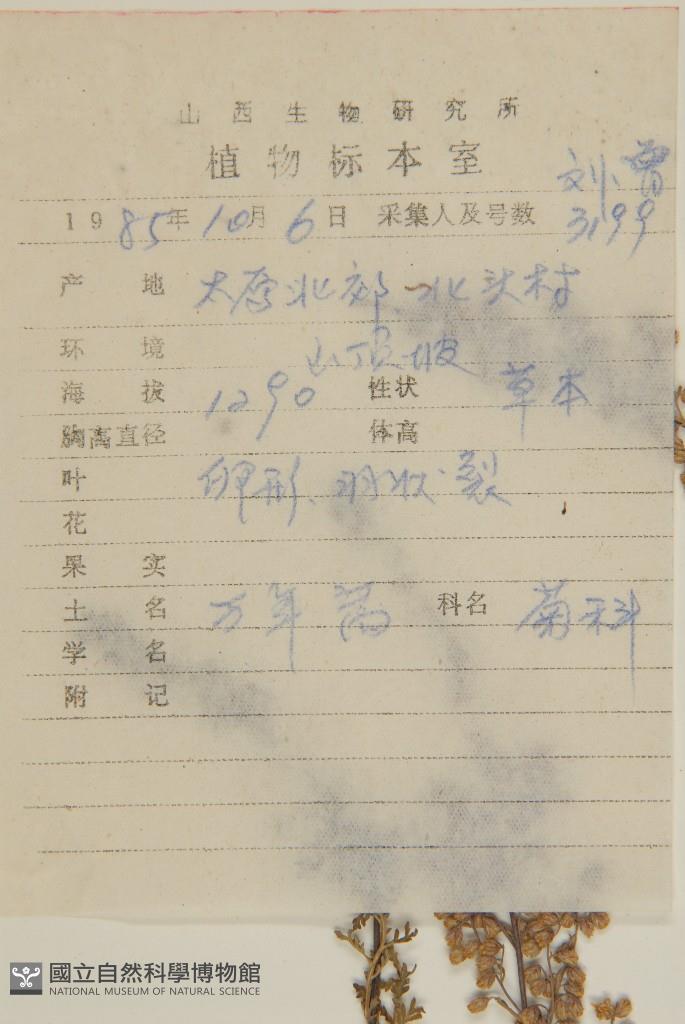 山西生物研究所
植物标本室
刘 曾
1985年10月6日 采集人及号数 3199
产地 太原北郊 北头村
环境 山顶坡
海拔 1290 性状 草本
胸高直径 体高
叶 卵形、羽状裂
花
果实
土名 万年蒿 科名 菊科
学名
附记
國立自然科學博物館
NATIONAL MUSEUM OF NATURAL SCIENCE